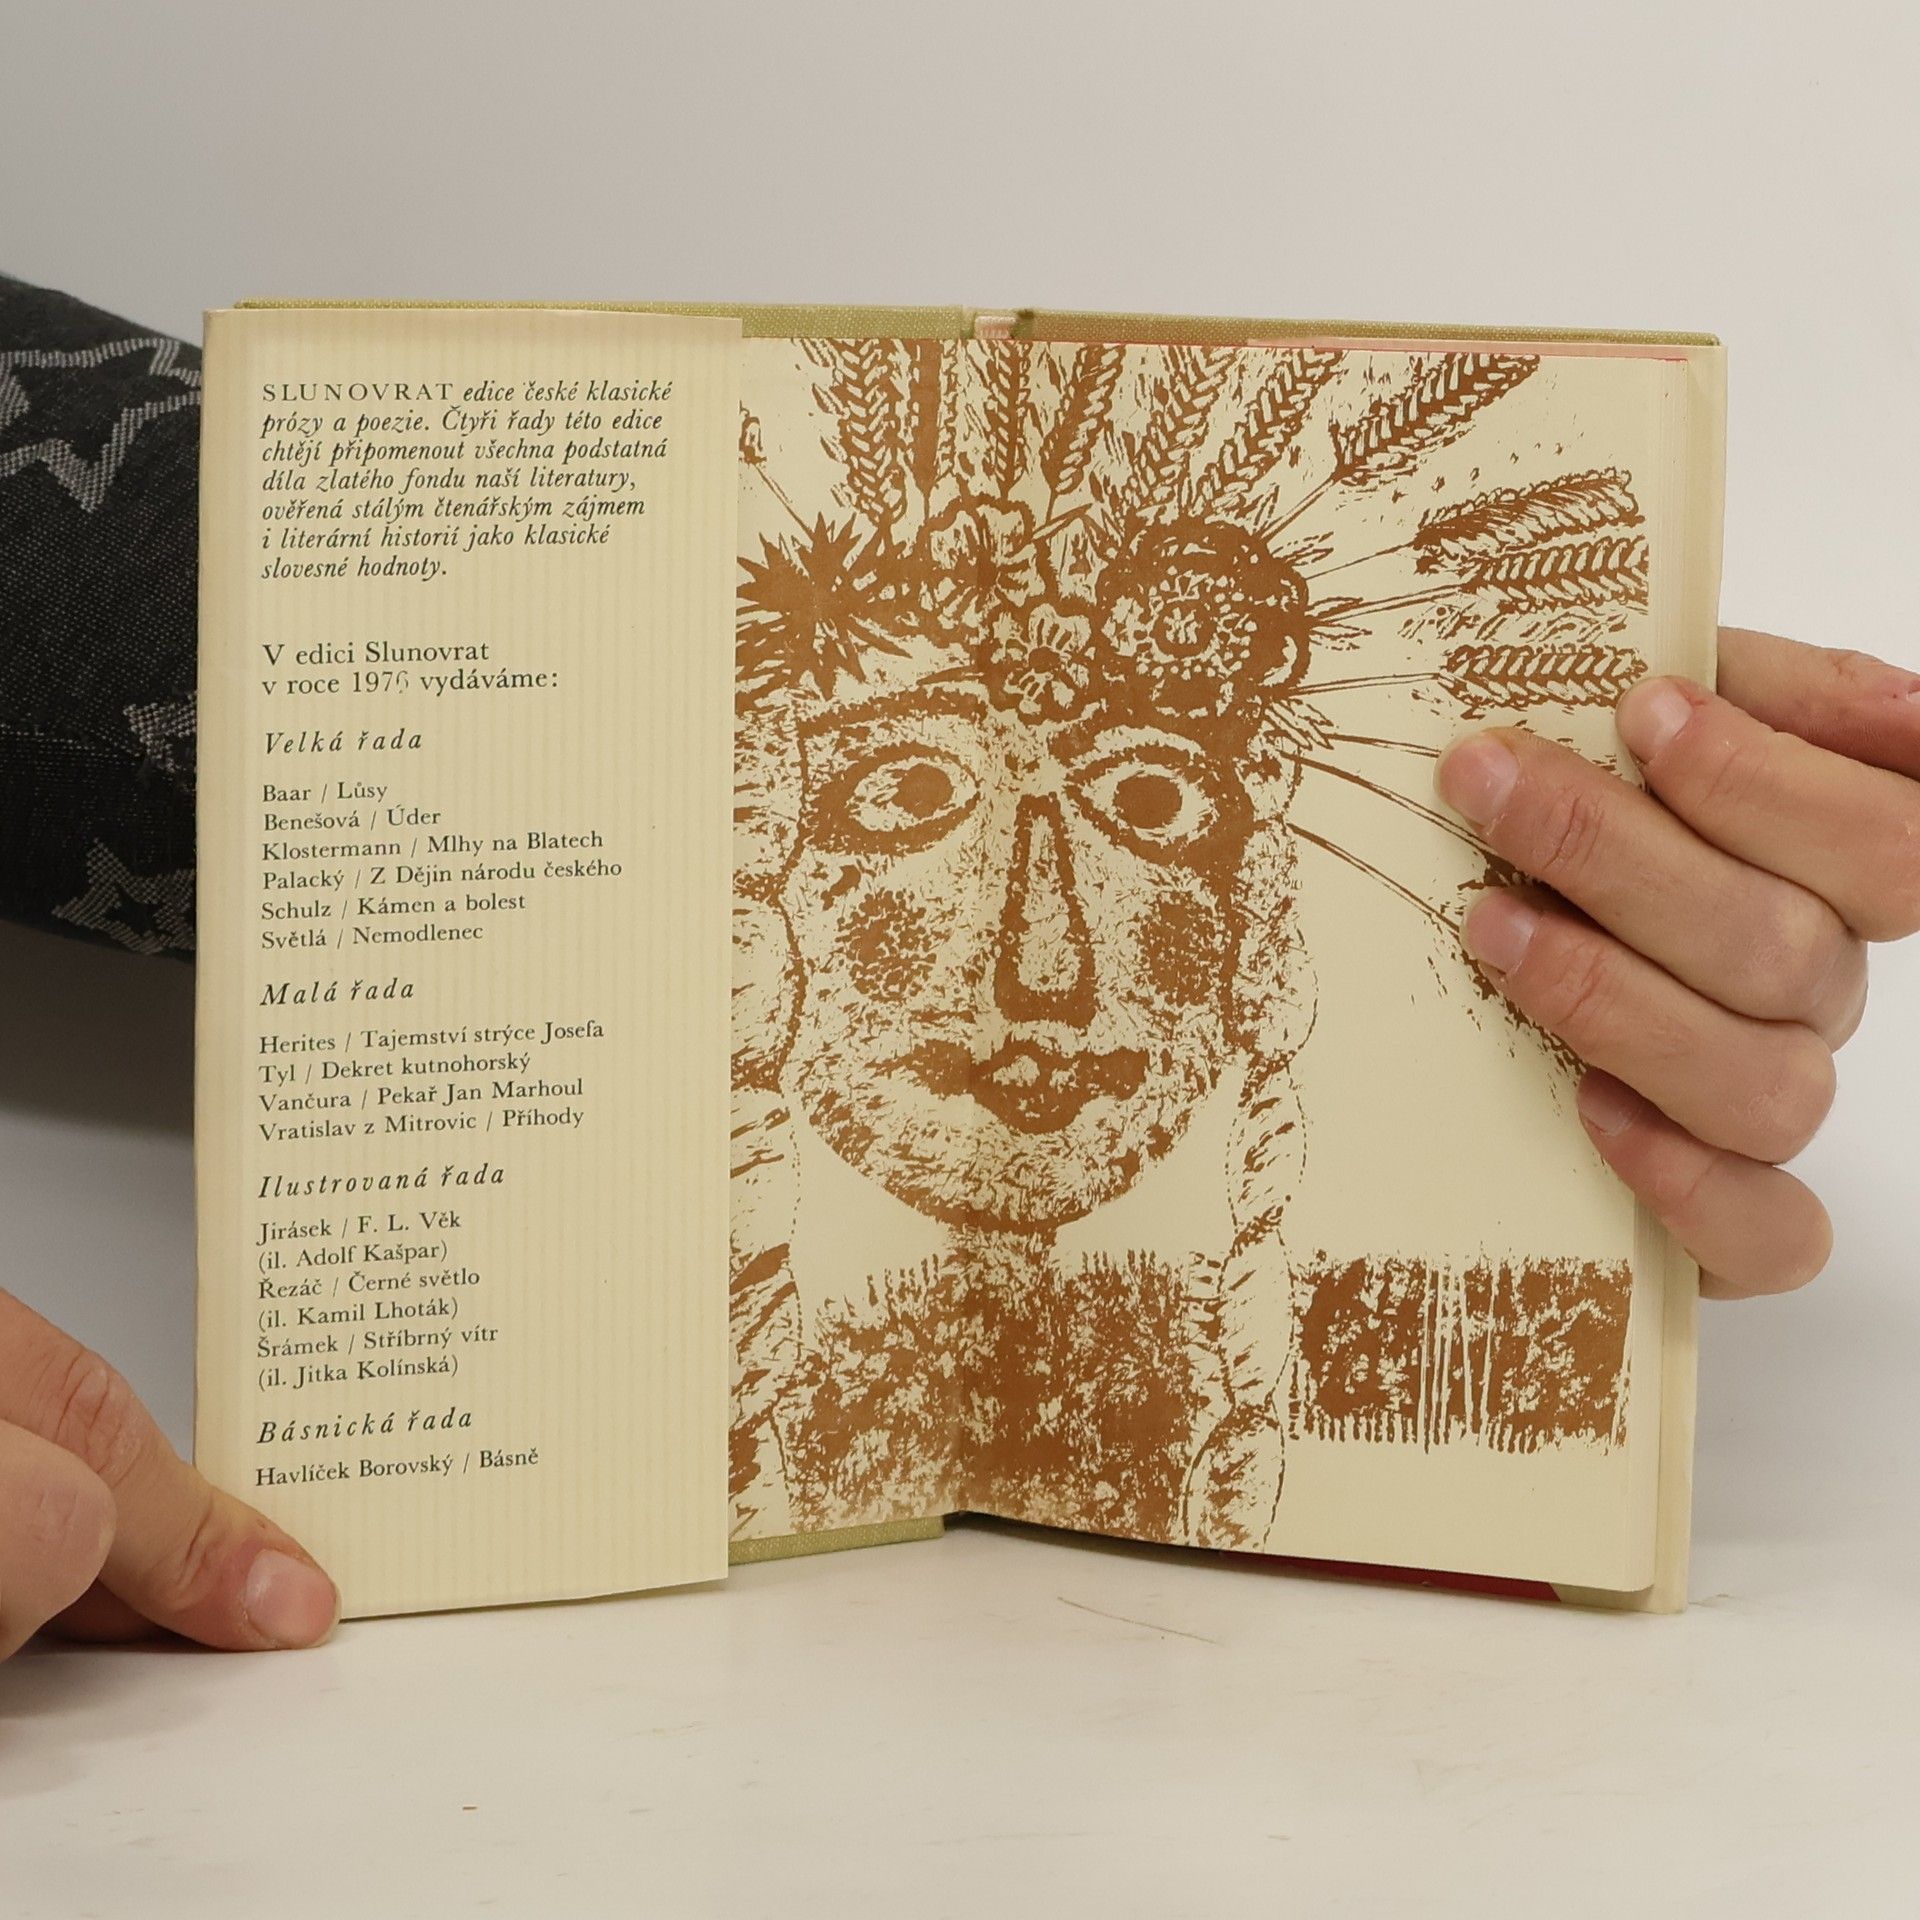 SLUNOVRAT edice české klasické
prózy a poezie. Čtyři řady této edice
chtějí připomenout všechna podstatná
díla zlatého fondu naší literatury,
ověřená stálým čtenářským zájmem
i literární historií jako klasické
slovesné hodnoty.
V edici Slunovrat
v roce 1976 vydáváme:
Velká řada
Baar / Lůsy
Benešová / Úder
Klostermann / Mlhy na Blatech
Palacký / Z Dějin národu českého
Schulz / Kámen a bolest
Světlá / Nemodlenec
Malá řada
Herites / Tajemství strýce Josefa
Tyl / Dekret kutnohorský
Vančura / Pekař Jan Marhoul
Vratislav z Mitrovic / Příhody
Ilustrovaná řada
Jirásek / F. L. Věk
(il. Adolf Kašpar)
Řezáč / Černé světlo
(il. Kamil Lhoták)
Šrámek / Stříbrný vítr
(il. Jitka Kolínská)
Básnická řada
Havlíček Borovský / Básně